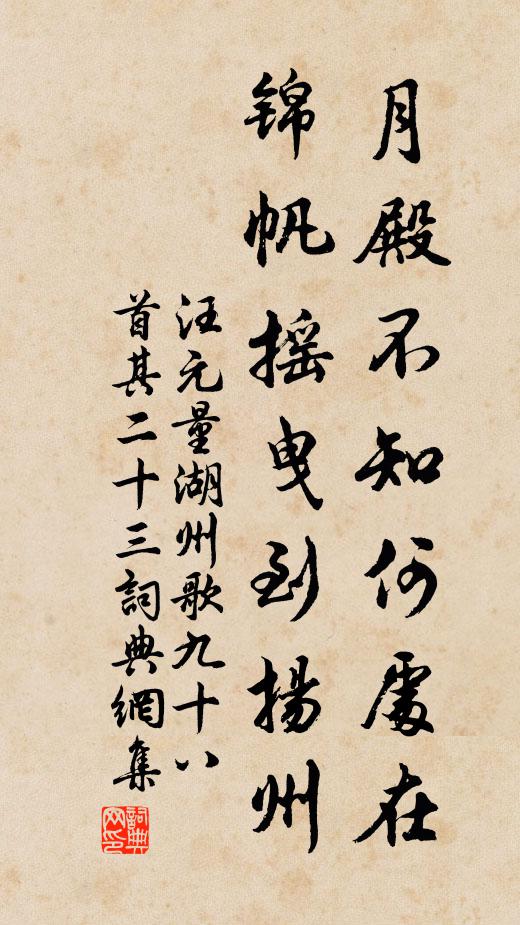 月殿不知何處在
锦帆摇曳到揚州
汪元量湖州歌九十八
首其二十三詞典網集
詞典
网印